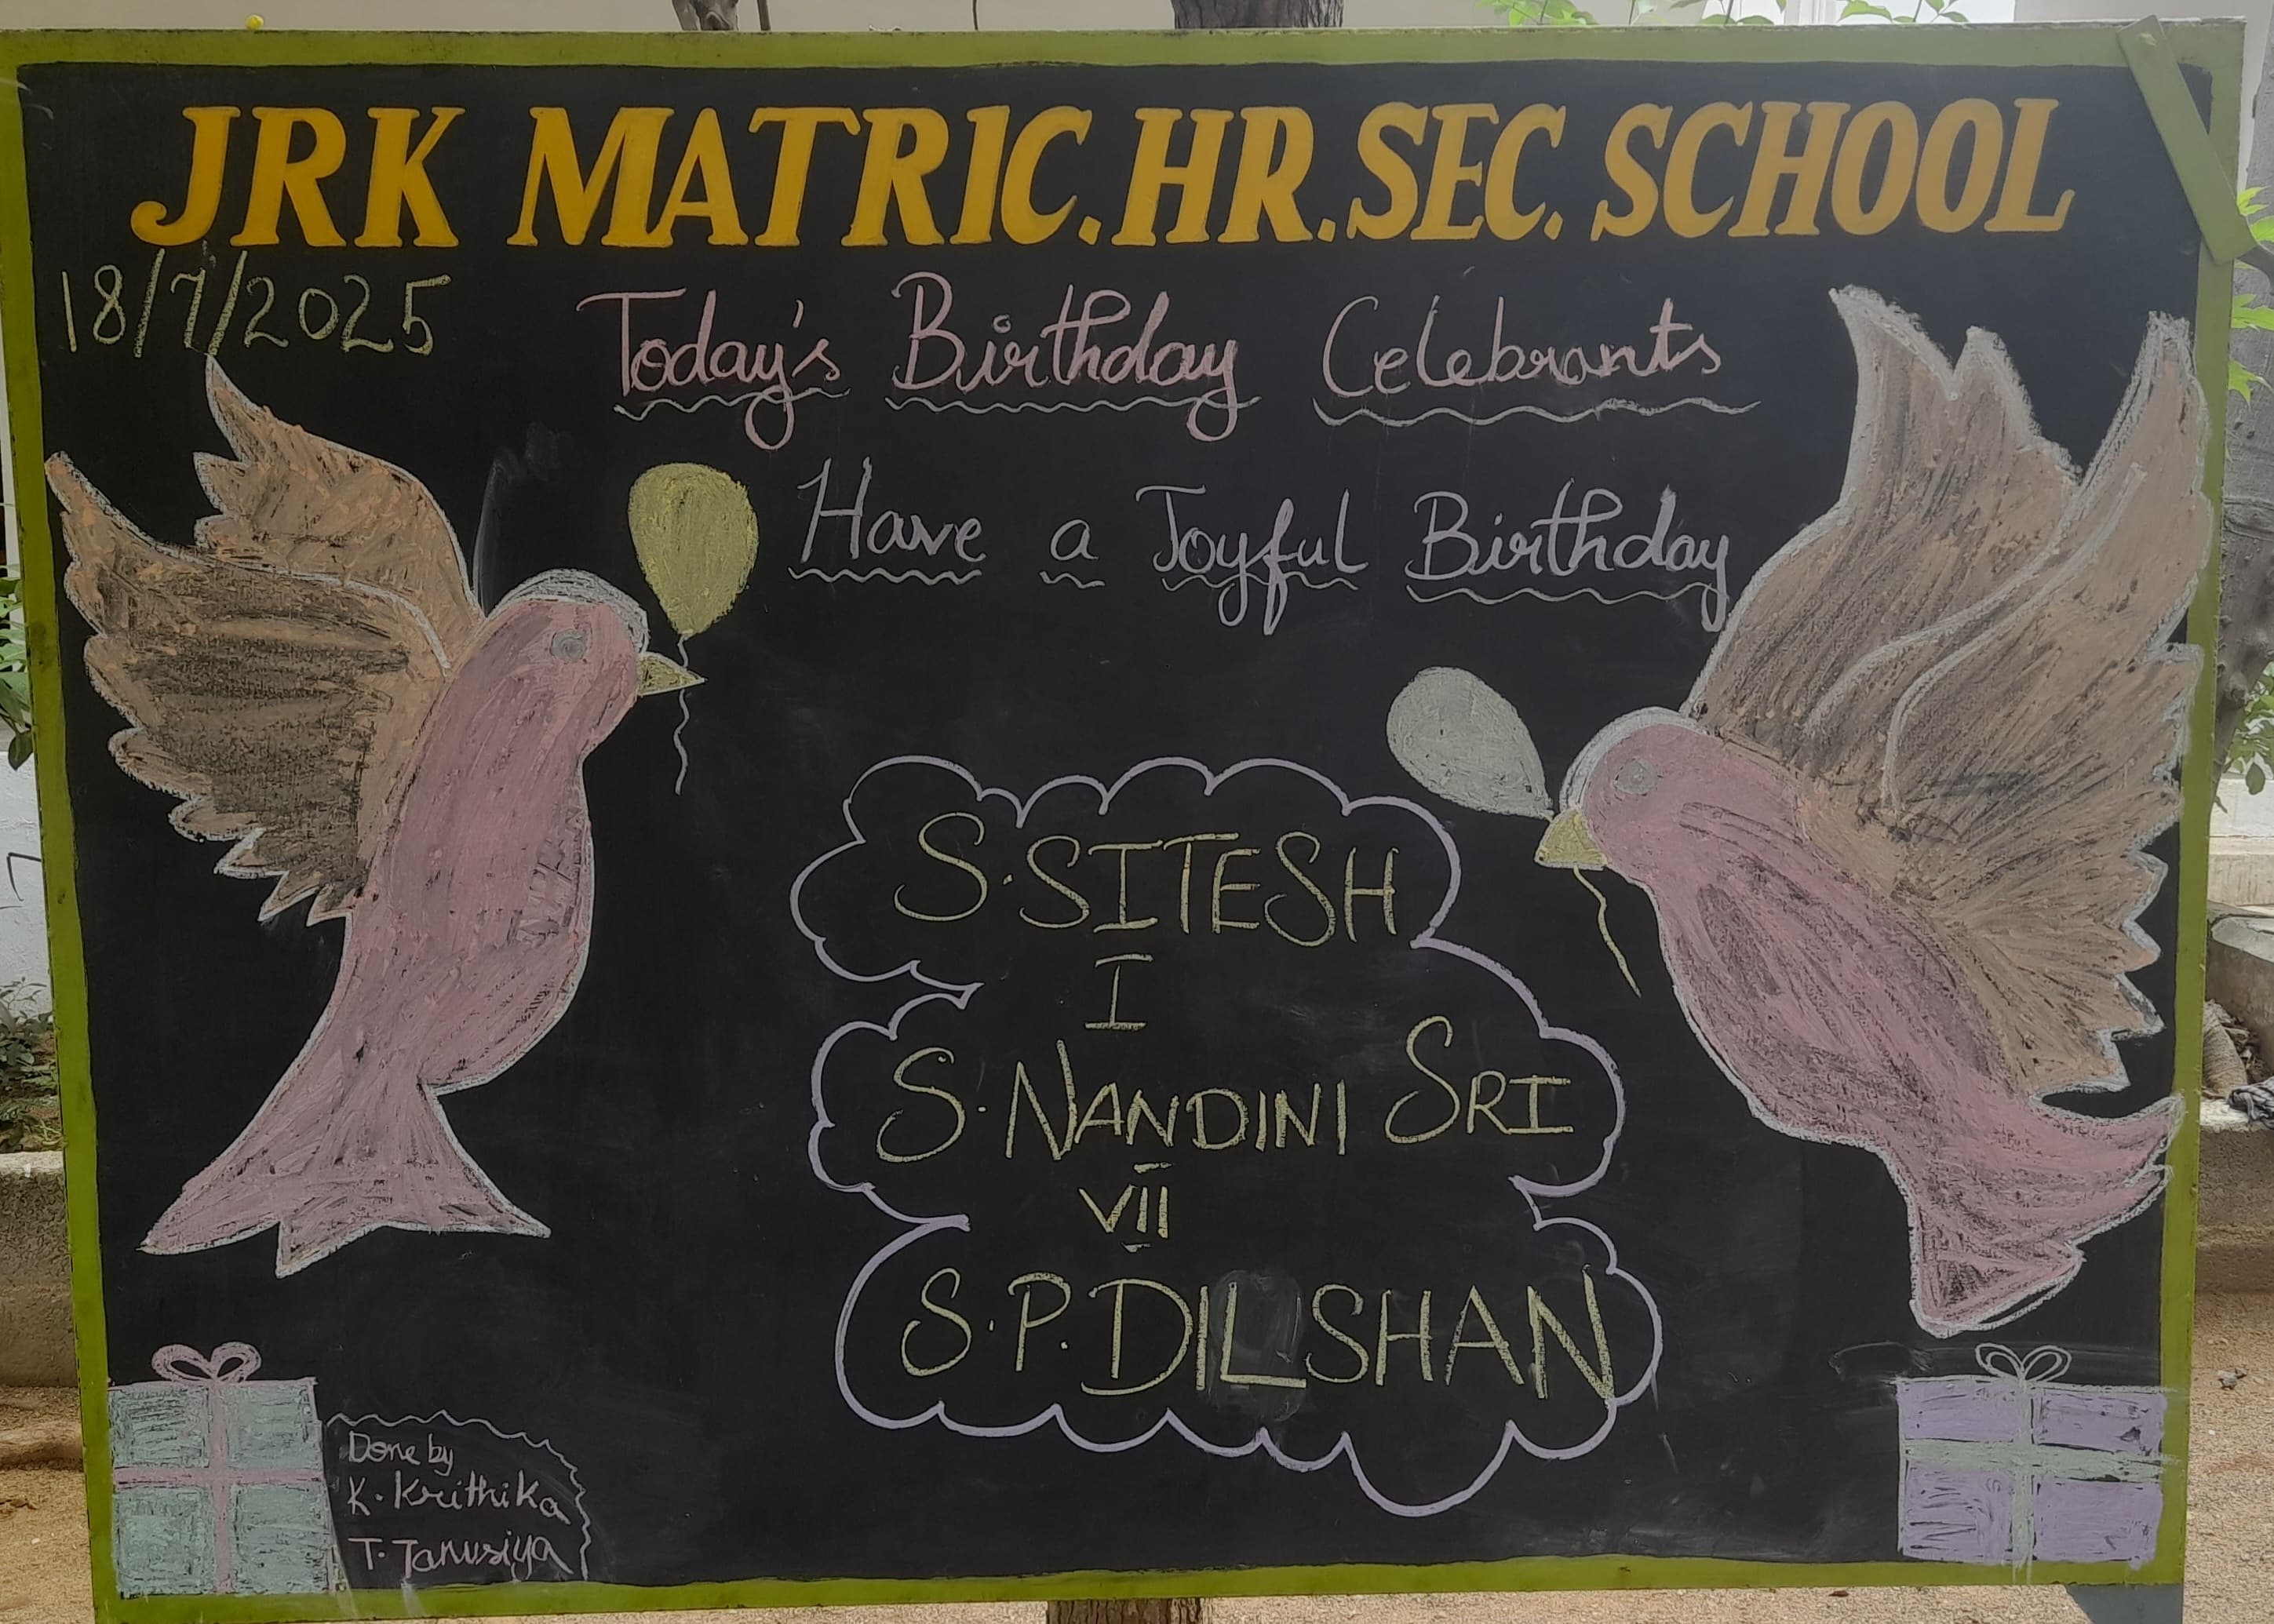 JRK MATRIC.HR.SEC. SCHOOL
18/7/2025
Today's Birthday Celebrants
Have a Joyful Birthday
S.SITESH
I
S.NANDINI SRI
VII
S.P.DILSHAN
Done by
K.Krithika
T.Tanusiya